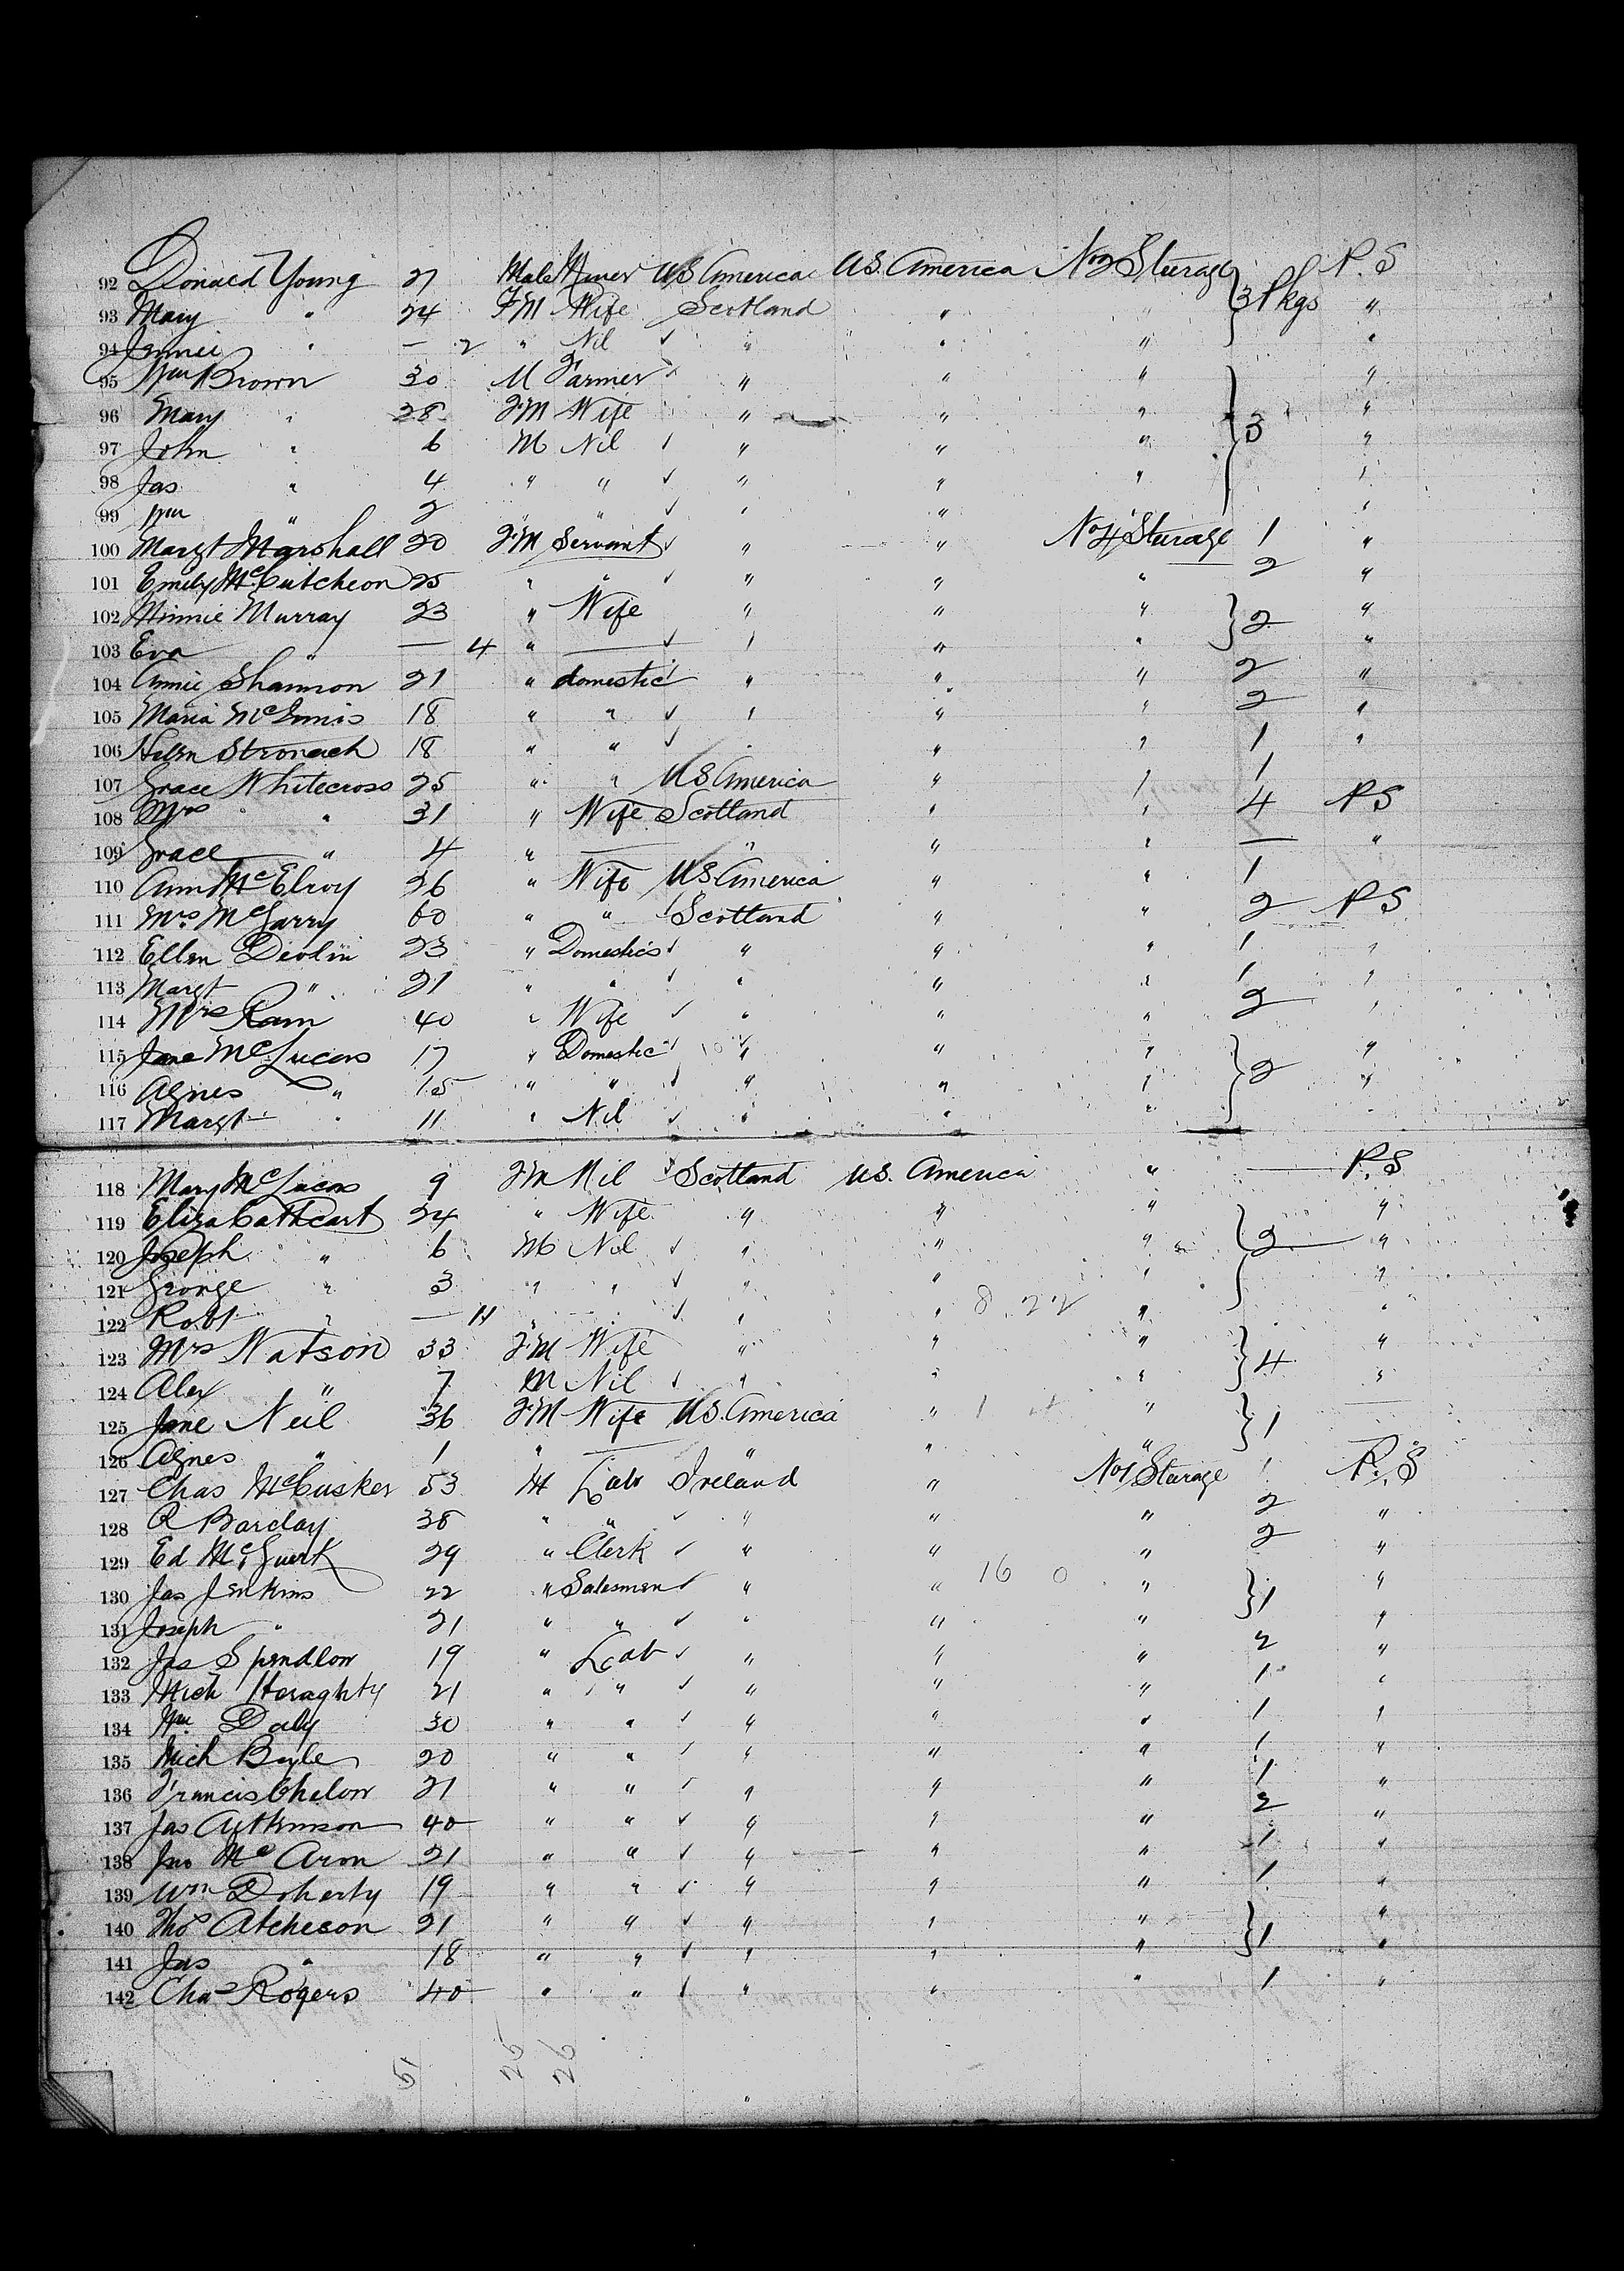 92 Donald Young 27 Male Miner US America US. America No 2 Sturage 3 Pkgs P. S
93 Mary " 24 FM Wife Scotland " " "
94 " — 2 " Nil " " " "
95 Wm Brown 30 M Farmer " " " "
96 Mary " 28 FM Wife " " " 3 "
97 John " 6 M Nil " " " "
98 Jas " 4 " " " " " "
99 Wm " 2 " " " " "
100 Margt Marshall 20 FM Servant " " No 4 Sturage 1 "
101 Emily McCutcheon 25 " " " " " 2 "
102 Minnie Murray 23 " Wife " " " 2 "
103 Eva " — 4 " — " " " "
104 Annie Shannon 21 " domestic " " " 2 "
105 Maria McInnis 18 " " " " " 2 "
106 Helen Stronach 18 " " " " " 1 "
107 Grace Whitecross 25 " " US America " " 1
108 Mrs " 31 " Wife Scotland " " 4 P S
109 Grace " 4 " — " " " — "
110 Ann McElroy 26 " Wife US. America " " 1
111 Mrs McGarry 60 " " Scotland " " 2 P S
112 Ellen Devlin 23 " Domestics " " " 1 "
113 Margt " 21 " " " " " 1 "
114 Mrs Rain 40 " Wife " " " 2 "
115 Jane McLucas 17 " Domestic " " " 2 "
116 Agnes " 15 " " " " " "
117 Margt " 11 " Nil " " "
118 Mary McLucas 9 FM Nil Scotland US. America " — P. S
119 Eliza Cathcart 24 " Wife " " " "
120 Joseph " 6 M Nil " " " 2 "
121 George " 3 " " " " " "
122 Robt " — 11 " " " 8 22 " "
123 Mrs Watson 33 FM Wife " " " 4 "
124 Alex " 7 M Nil " " " "
125 Jane Neil 36 FM Wife US. America " " 1 —
126 Agnes " 1 " — " " "
127 Chas McCusker 53 M Lab Ireland " No 1 Sturage 1 P. S
128 R Barclay 38 " " " " " 2 "
129 Ed McGuerk 29 " Clerk " " " 2 "
130 Jas Jenkins 22 " Salesmen " " 16 0 " 1 "
131 Joseph " 21 " " " " " "
132 Jas Spendlow 19 " Lab " " " 2 "
133 Mich Heraghty 21 " " " " " 1 "
134 Wm Daly 30 " " " " " 1 "
135 Mich Boyle 20 " " " " " 1 "
136 Francis Chelow 21 " " " " " 1 "
137 Jas Aitkinson 40 " " " " " 2 "
138 Jno McAron 21 " " " " " 1 "
139 Wm Doherty 19 " " " " " 1 "
140 Thos Atcheson 21 " " " " " 1 "
141 Jas " 18 " " " " " "
142 Chas Rogers 40 " " " " " 1 "
51 25 26